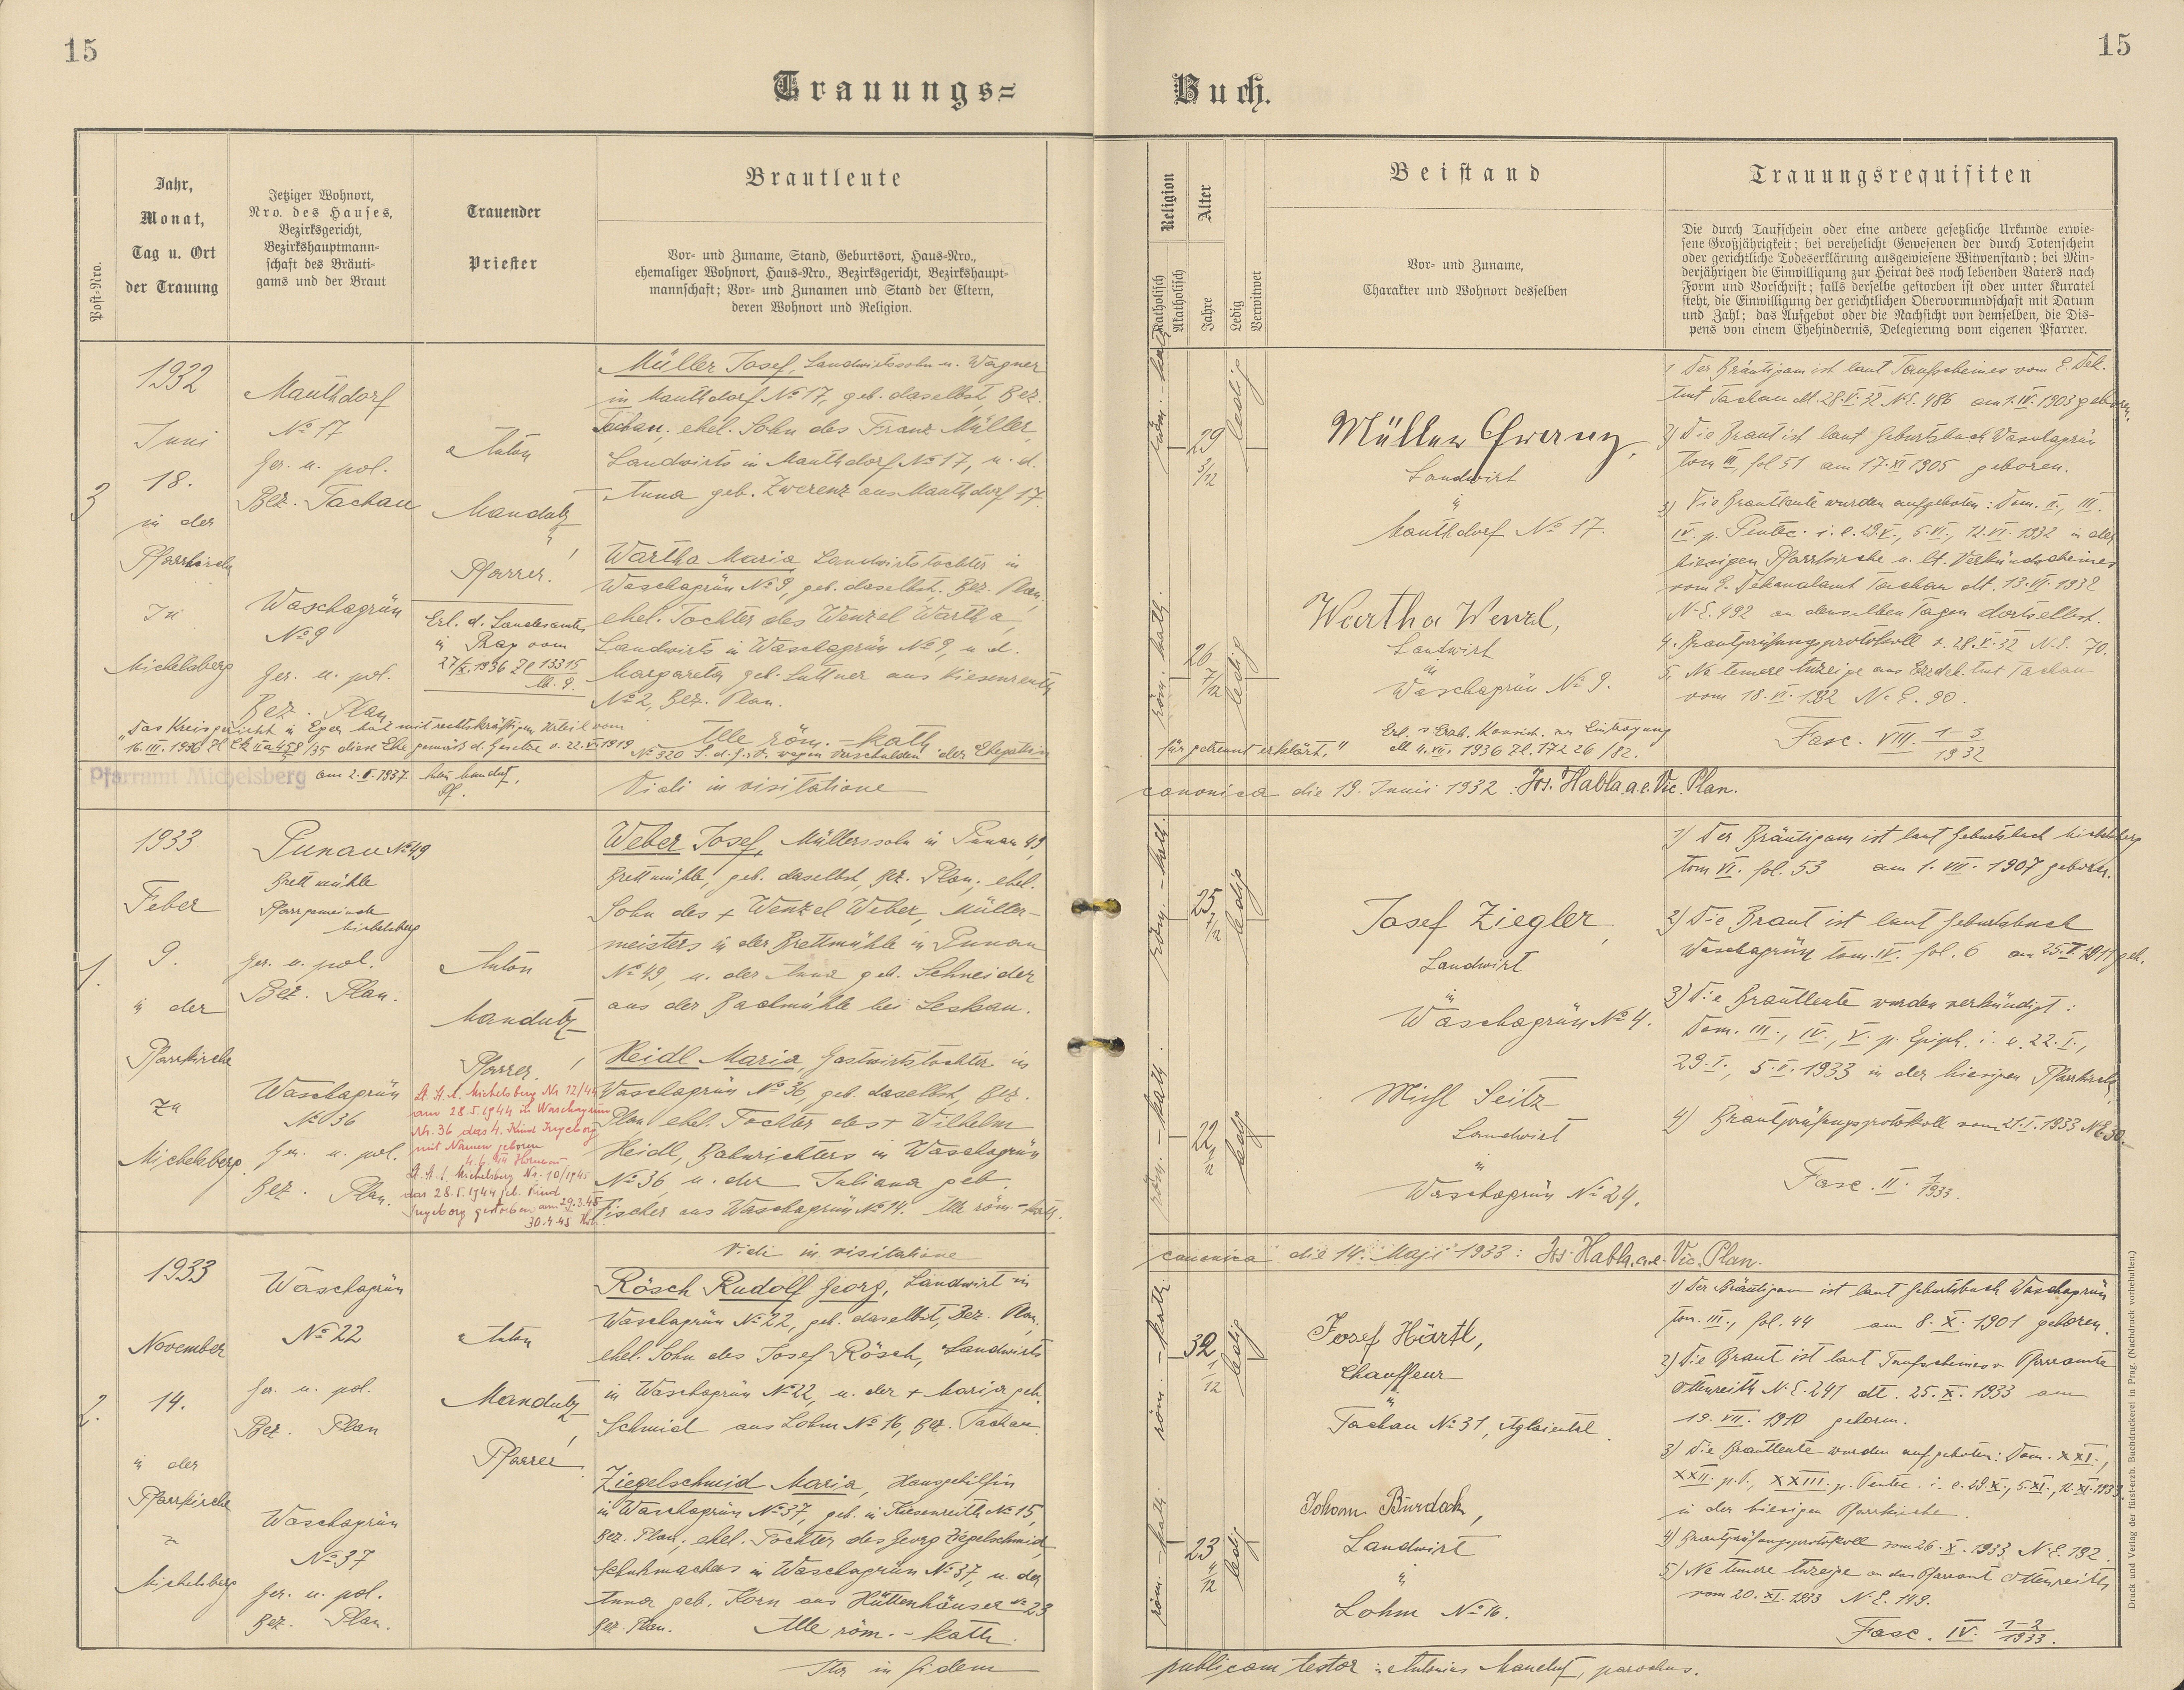 15
15
Trauungs=
Buch.
Post-Nro.
Jahr,
Monat,
Tag u. Ort
der Trauung
Jetziger Wohnort,
Nro. des Hauses,
Bezirksgericht,
Bezirkshauptmann-
schaft des Bräuti-
gams und der Braut
Trauender
Priester
Brautleute
Vor- und Zuname, Stand, Geburtsort, Haus-Nro.,
ehemaliger Wohnort, Haus-Nro., Bezirksgericht, Bezirkshaupt-
mannschaft; Vor- und Zunamen und Stand der Eltern,
deren Wohnort und Religion.
Religion
Katholisch
Akatholisch
Alter
Jahre
Ledig
Verwitwet
Beistand
Vor- und Zuname,
Charakter und Wohnort desselben
Trauungsrequisiten
Die durch Taufschein oder eine andere gesetzliche Urkunde erwie-
sene Großjährigkeit; bei verehelicht Gewesenen der durch Totenschein
oder gerichtliche Todeserklärung ausgewiesene Witwenstand; bei Min-
derjährigen die Einwilligung zur Heirat des noch lebenden Vaters nach
Form und Vorschrift; falls derselbe gestorben ist oder unter Kuratel
steht, die Einwilligung der gerichtlichen Obervormundschaft mit Datum
und Zahl; das Aufgebot oder die Nachsicht von demselben, die Dis-
pens von einem Ehehindernis, Delegierung vom eigenen Pfarrer.
3
1932
Juni
18.
in der
Pfarrkirche
zu
Michelsberg
Mauthdorf
No 17
Ger. u. pol.
Bez. Tachau
Waschagrün
No 9
Ger. u. pol.
Bez. Plan
Anton
Mandutz,
Pfarrer.
Erl. d. Landesamtes
in Prag vom
27/X. 1936 Zl 15315
Müller Josef, Landwirtssohn u. Wagner
in Mauthdorf No 17, geb. daselbst, Bez.
Tachau, ehel. Sohn des Franz Müller,
Landwirts in Mauthdorf No 17, u. d.
Anna geb. Zwerenz aus Mauthdorf 17.
Wartha Maria, Landwirtstochter in
Waschagrün No 9, geb. daselbst, Bez. Plan,
ehel. Tochter des Wenzel Wartha,
Landwirts in Waschagrün No 9, u. d.
Margareta geb. Luttner aus Kiesenreuth
No 2, Bez. Plan.
Alle röm. - kath
"Das Kreisgericht in Eger hat mit rechtskräftigem Urteil vom
16. III. 1936 Zl Ck IIa 458/35 diese Ehe gemäß d. Gesetze v. 22. V. 1919
No 320 S. d. G. u. V. wegen Verschulden der Ehegattin
für getrennt erklärt."
Pfarramt Michelsberg
am 2. I. 1937
röm. - kath.
29 3/12
ledig
Müller Franz,
Landwirt
in
Mauthdorf No 17.
röm. kath.
26 7/12
ledig
Wartha Wenzl,
Landwirt
in
Waschagrün No 9.
1) Der Bräutigam ist laut Taufscheines vom E. Dek.
Amt Tachau dt. 28. V. 32 N.E. 486 am 1. IV. 1903 geboren.
2) Die Braut ist laut Geburtsbuch Waschagrün
tom III, fol 51 am 17. XI 1905 geboren.
3) Die Brautleute wurden aufgeboten: Dom. II., III.
IV. p. Pentec. i. e. 29. V., 5. VI., 12. VI. 1932 in der
hiesigen Pfarrkirche u. lt. Verkündscheines
vom E. Dekanalamt Tachau dt. 13. VI. 1932
N.E. 492 an denselben Tagen dortselbst.
4. Brautprüfungsprotokoll v. 28. V. 32 N.E. 70.
5. Ne temere Anzeige ans Erzdek. Amt Tachau
vom 18. VI. 1932 N.E. 90.
Fasc. VIII. 1-3/1932
Vidi in visitatione
canonica die 19. Junii 1932. Jos. Habla, a. e. Vic. Plan.
1.
1933
Feber
9.
in der
Pfarrkirche
zu
Michelsberg
Punau No 49
Brettmühle
Pfarrgemeinde
Michelsberg
Ger. u. pol.
Bez. Plan.
Waschagrün
No 36
Ger. u. pol.
Bez. Plan.
Anton
Mandutz,
Pfarrer.
Lt. St. A. Michelsberg Nr. 12/44
am 28.5.1944 in Waschagrün
Nr. 36 das 4. Kind Ingeborg
mit Namen geboren
Lt. St. A. Michelsberg Nr. 10/1945
das 28. 5. 1944 geb. Kind
Ingeborg gestorben am 29.3.45
30.4.45
Weber Josef, Müllerssohn in Punau 49
Brettmühle, geb. daselbst, Bez. Plan, ehel.
Sohn des + Wenzel Weber, Müller-
meisters in der Brettmühle in Punau
No 49, u. der Anna geb. Schneider
aus der Bachmühle bei Leskau.
Heidl Maria, Gastwirtstochter in
Waschagrün No 36, geb. daselbst, Bez.
Plan, ehel. Tochter des + Wilhelm
Heidl, Bahnrichters in Waschagrün
No 36, u. der Juliana geb.
Fischer aus Waschagrün No 14. Alle röm - kath.
röm. - kath.
25 7/12
ledig
Josef Ziegler,
Landwirt
in
Waschagrün No 4.
röm. - kath.
22 1/12
ledig
Michl Seitz
Landwirt
in
Waschagrün No 24.
1) Der Bräutigam ist laut Geburtsbuch Michelsberg
tom VI. fol. 53 am 1. VII. 1907 geboren.
2) Die Braut ist laut Geburtsbuch
Waschagrün tom. IV. fol. 6 am 25. I. 1911 geb.
3) Die Brautleute wurden verkündigt:
Dom. III., IV., V. p. Epiph. i. e. 22. I.,
29. I., 5. II. 1933 in der hiesigen Pfarrkirche.
4) Brautprüfungsprotokoll vom 21. I. 1933 N.E. 30.
Fasc. II. 1/1933.
Vidi in visitatione
canonica die 14. Maji 1933: Jos. Habla, a. e. Vic. Plan.
2.
1933
November
14.
in der
Pfarrkirche
zu
Michelsberg
Waschagrün
No 22
Ger. u. pol.
Bez. Plan
Waschagrün
No 37
Ger. u. pol.
Bez. Plan.
Anton
Mandutz,
Pfarrer
Rösch Rudolf Georg, Landwirt in
Waschagrün No 22, geb. daselbst, Bez. Plan,
ehel. Sohn des Josef Rösch, Landwirts
in Waschagrün No 22, u. der + Maria geb.
Schmid aus Lohm No 16, Bez. Tachau.
Ziegelschmid Maria, Hausgehilfin
in Waschagrün No 37, geb. in Kiesenreith No 15,
Bez. Plan, ehel. Tochter des Georg Ziegelschmid,
Schuhmachers in Waschagrün No 37, u. der
Anna geb. Korn aus Hüttenhäuser No 23
Bez. Plan. Alle röm. - kath.
röm. - kath.
32 1/12
ledig
Josef Härtl,
Chauffeur
in
Tachau No 31, Aglaiental.
röm. - kath.
23 4/12
ledig
Johann Burdach,
Landwirt
in
Lohm No 16.
1) Der Bräutigam ist laut Geburtsbuch Waschagrün
tom. III., fol. 44 am 8. X. 1901 geboren.
2) Die Braut ist laut Taufscheines v. Pfarramte
Ottenreith N.E. 241 dt. 25. X. 1933 am
19. VII. 1910 geboren.
3) Die Brautleute wurden aufgeboten: Dom. XXI.,
XXII. p. P., XXIII. p. Pentec. i. e. 29. X., 5. XI., 12. XI. 1933
in der hiesigen Pfarrkirche.
4) Brautprüfungsprotokoll vom 26. X. 1933 N.E. 192.
5) Ne temere Anzeige an das Pfarramt Ottenreith
vom 20. XI. 1933 N.E. 149.
Fasc. IV. 1-2/1933.
Ita in fidem
publicam testor: Antonius Mandutz, parochus.
Druck und Verlag der fürst-erzb. Buchdruckerei in Prag. (Nachdruck vorbehalten.)